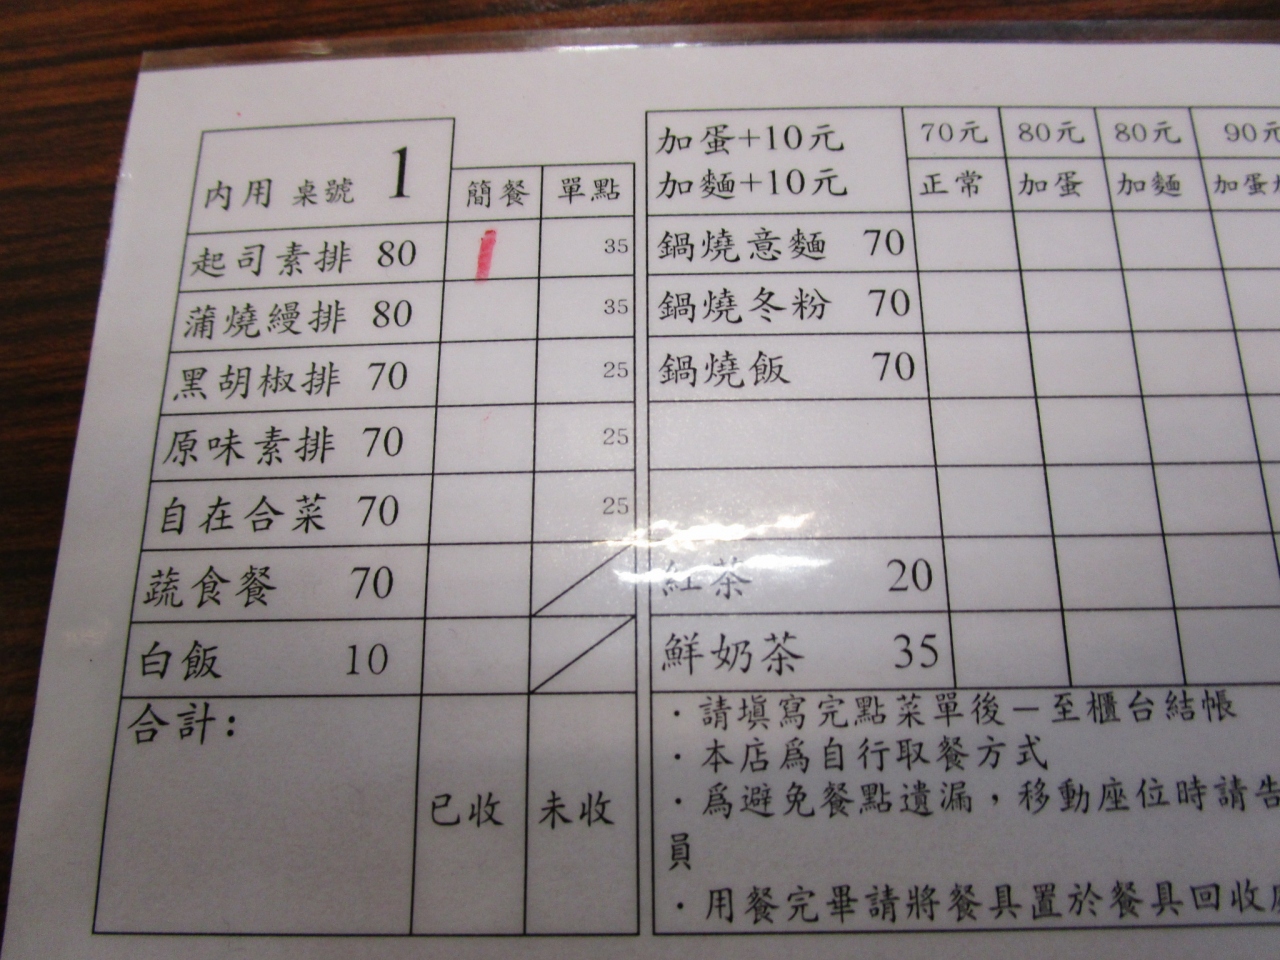 內用 桌號 1
簡餐 單點
起司素排 80 35
蒲燒鰻排 80 35
黑胡椒排 70 25
原味素排 70 25
自在合菜 70 25
蔬食餐 70
白飯 10
合計:
已收 未收
加蛋+10元 70元 80元 80元 90元
加麵+10元 正常 加蛋 加麵 加蛋
鍋燒意麵 70
鍋燒冬粉 70
鍋燒飯 70
紅茶 20
鮮奶茶 35
·請填寫完點菜單後－至櫃台結帳
·本店爲自行取餐方式
·爲避免餐點遺漏，移動座位時請告
員
·用餐完畢請將餐具置於餐具回收